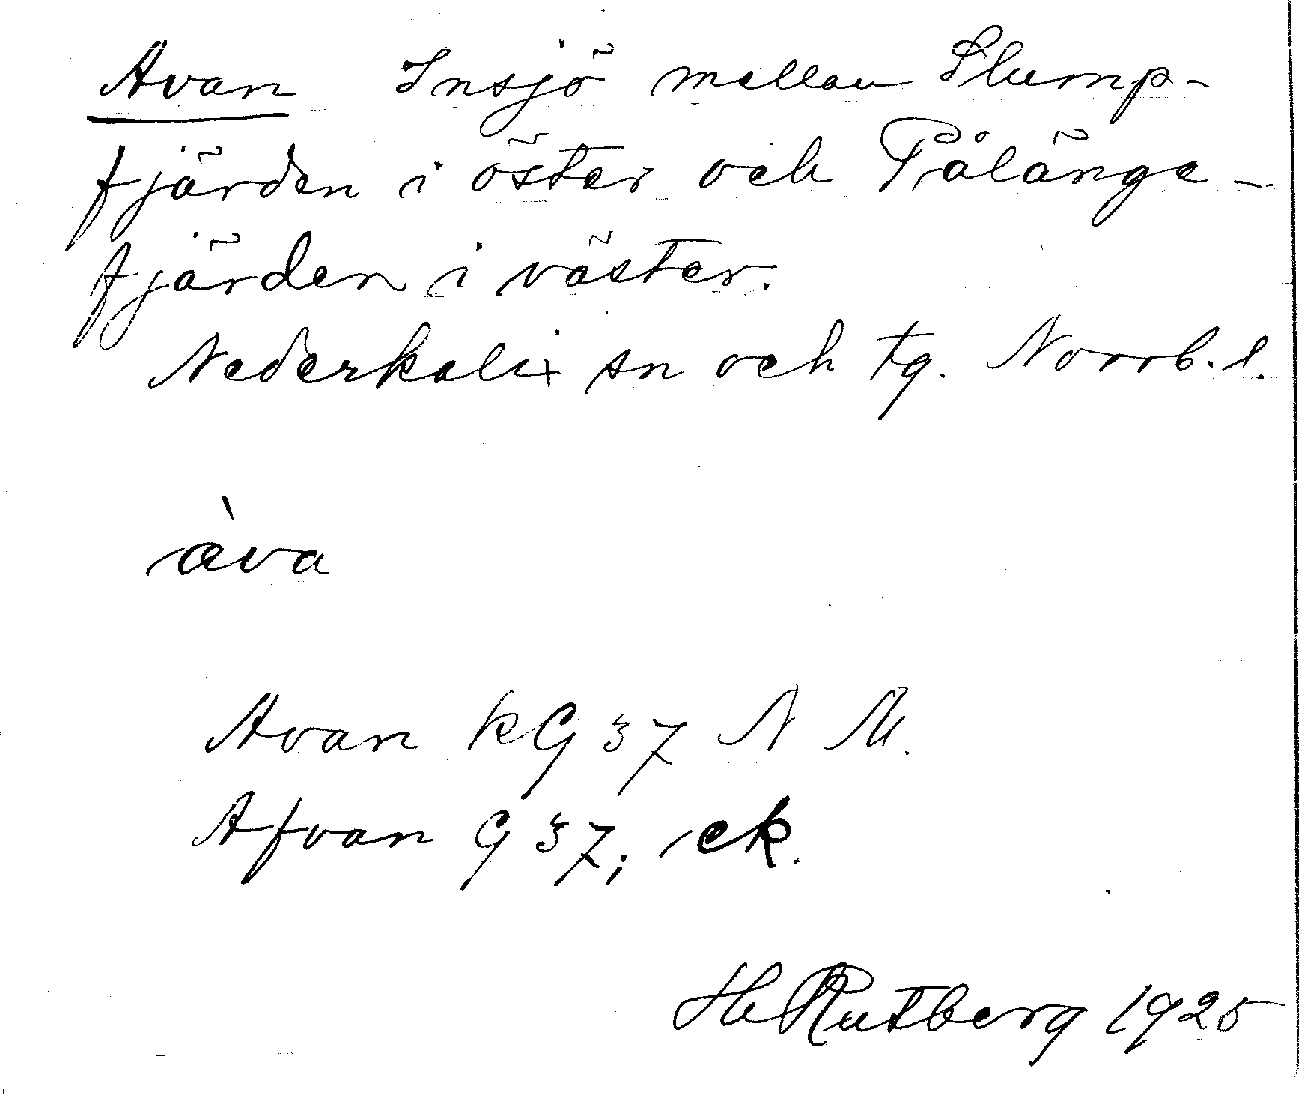 Avan Insjö mellan Slump-
fjärden i öster och Pålänge-
fjärden i väster.
Nederkalix sn och tg. Norrb. l.
àva
Avan kG 37 N M.
Afvan G 37; ek.
H Rutberg 1925